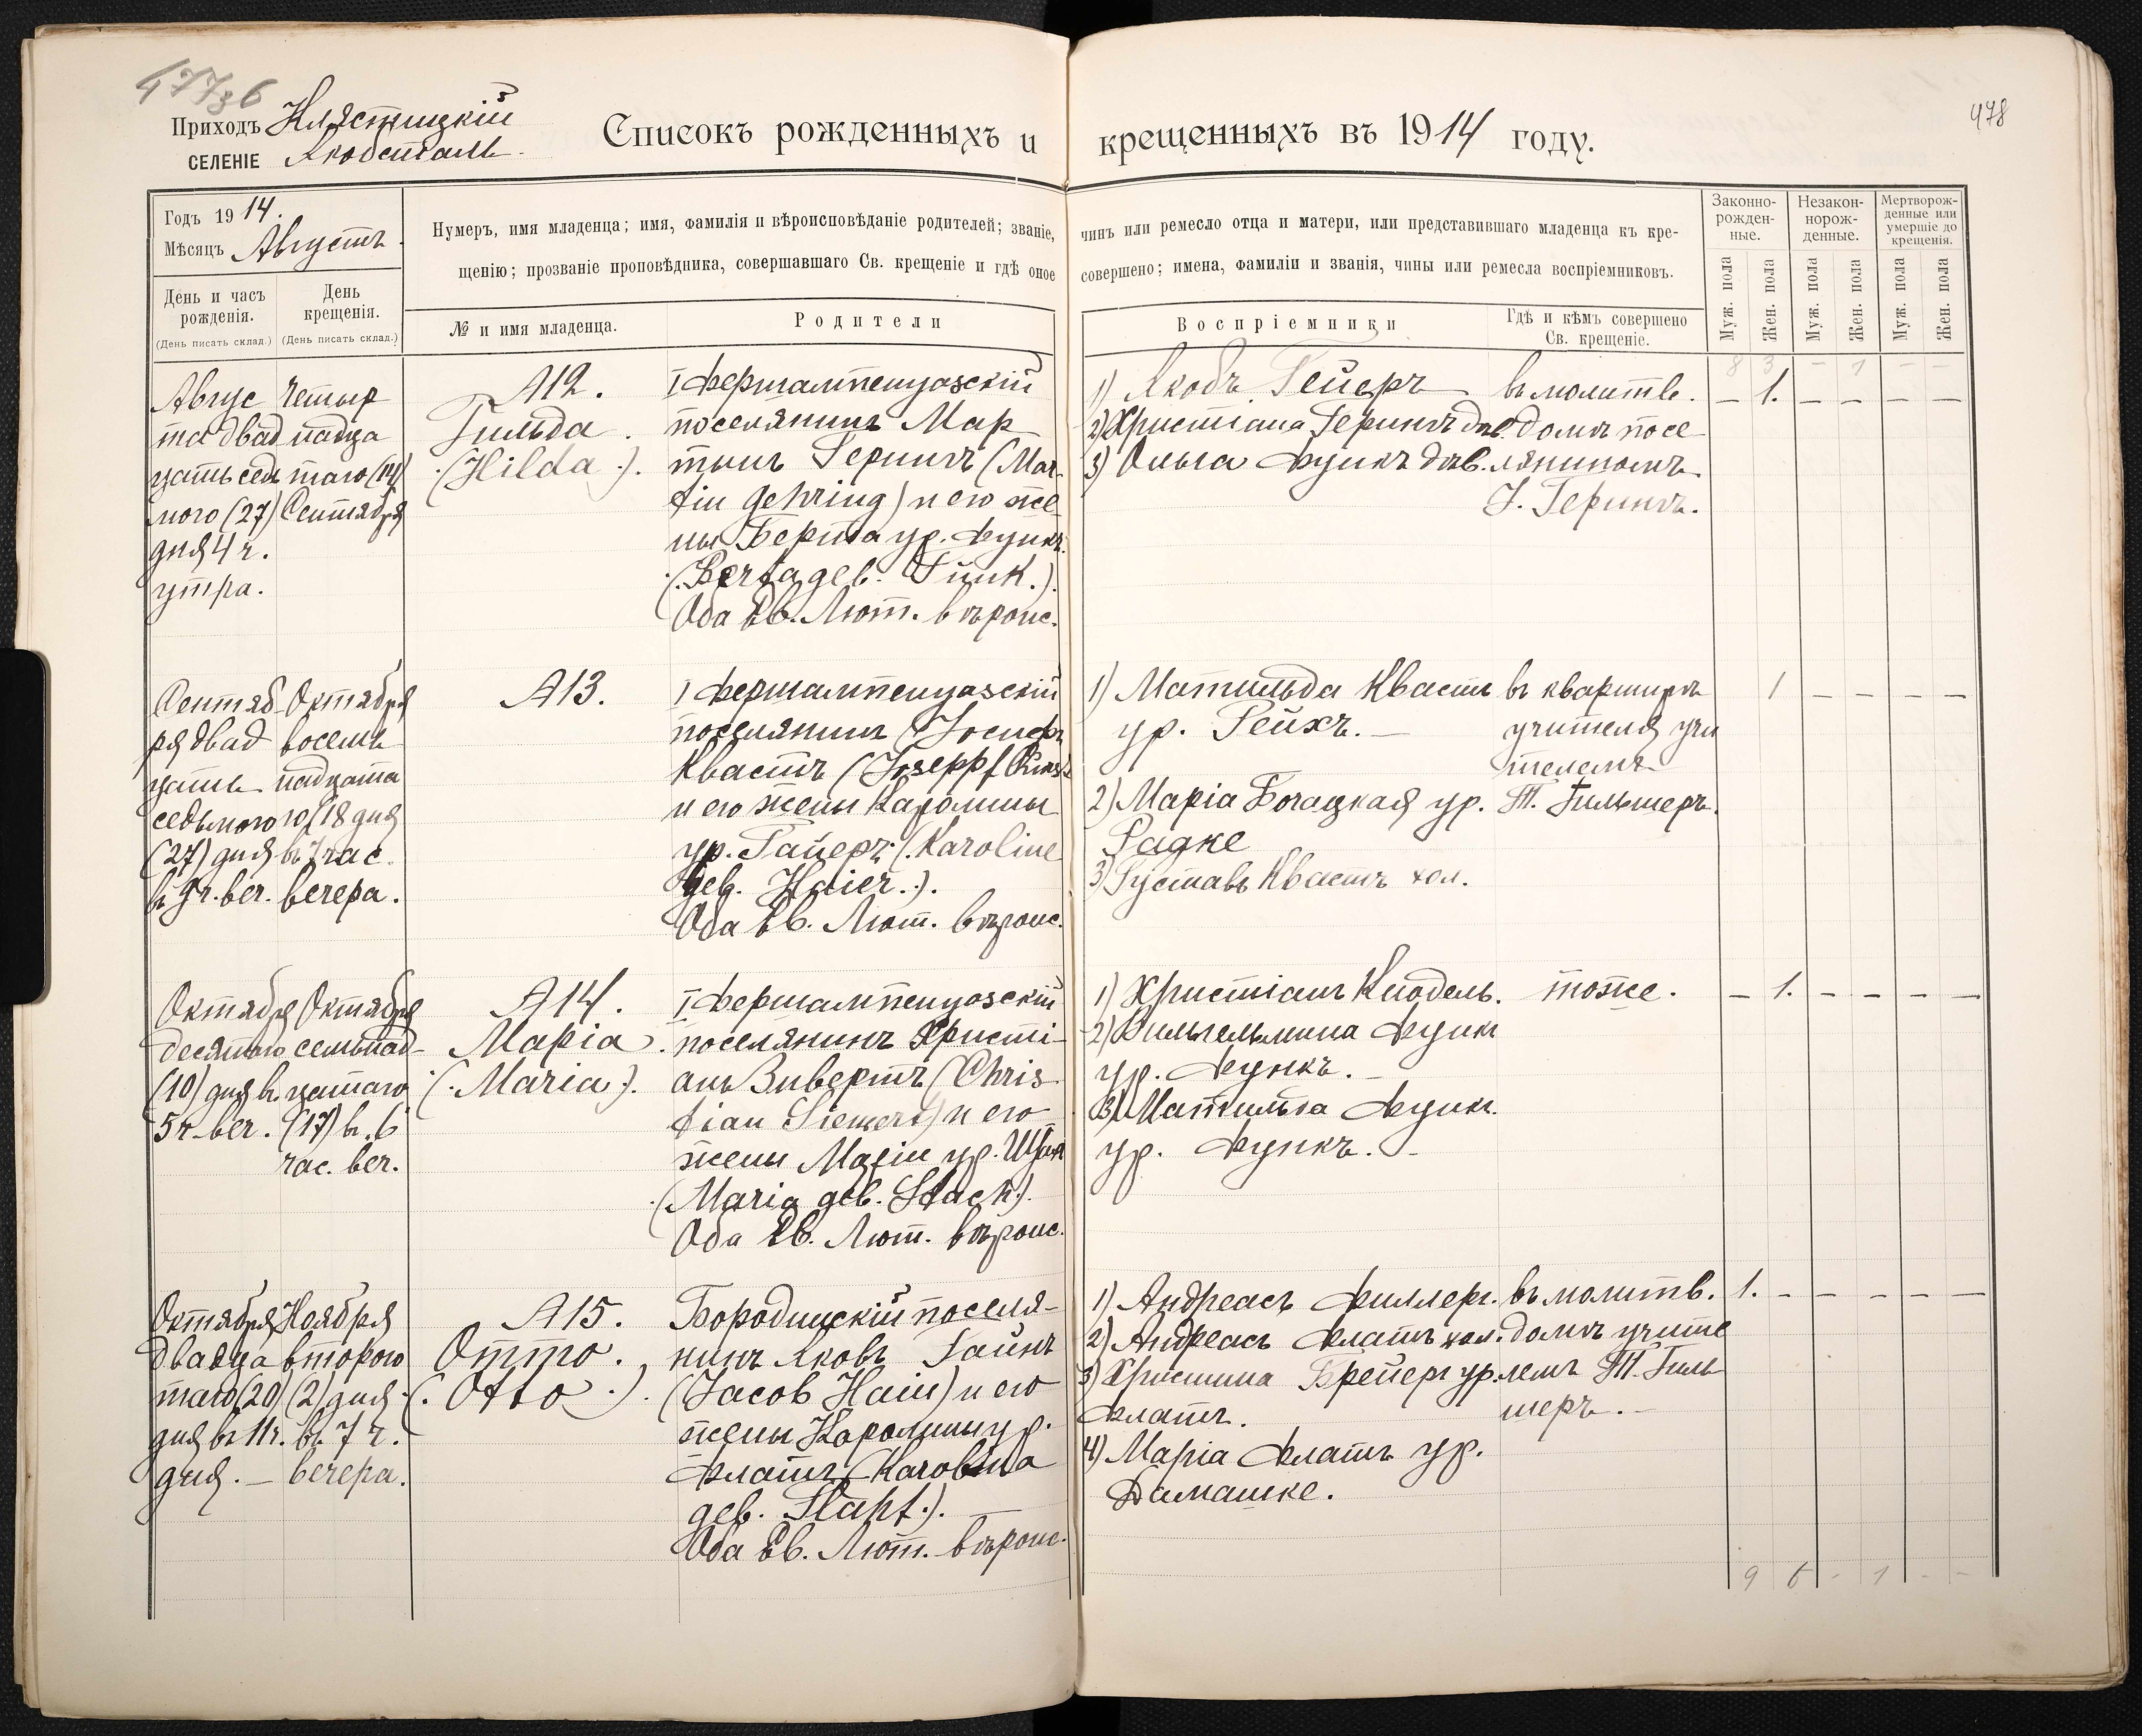 477 36
Приходъ Клястицкій
СЕЛЕНІЕ Якобсталь
Списокъ рожденныхъ и крещенныхъ въ 1914 году.
478
Годъ 1914.
Мѣсяцъ Августъ.
Нумеръ, имя младенца; имя, фамилія и вѣроисповѣданіе родителей; званіе, чинъ или ремесло отца и матери, или представившаго младенца къ кре-
щенію; прозваніе проповѣдника, совершавшаго Св. крещеніе и гдѣ оное совершено; имена, фамиліи и званія, чины или ремесла воспріемниковъ.
Законно-
рожден-
ные.
Незакон-
норож-
денные.
Мертворож-
денные или
умершіе до
крещенія.
День и часъ
рожденія.
(День писать склад.)
День
крещенія.
(День писать склад.)
№ и имя младенца.
Родители
Воспріемники
Гдѣ и кѣмъ совершено
Св. крещеніе.
Муж. пола
Жен. пола
Муж. пола
Жен. пола
Муж. пола
Жен. пола
8 3 - 1 - -
Авгус
та двад
цать седь
мого (27)
дня 4 ч.
утра.
Четыр
надца
таго (14)
Сентября
А12.
Гильда.
(. Hilda .).
I Фершампенуазскій
поселянинъ Мар
тинъ Герингъ (Mar-
tin Gehring) и его же
ны Берта ур. Функъ.
(. Berta geb. Funk.).
Оба Ев. Лют. вѣроис.
1) Якобъ Гейеръ
2) Христіана Герингъ дѣв.
3) Ольга Функъ дѣв.
въ молитв.
домѣ посе
ляниномъ
Г. Герингъ.
– 1. – – – –
Сентяб
ря двад
цать
седьмого
(27) дня
въ 9 ч. веч.
Октября
восем
надцата
го (18 дня
въ 7 час.
вечера.
А13.
I Фершампенуазскій
поселянинъ Іосифъ
Квастъ (Joseppf Quast
и его жены Каролины
ур. Гайеръ (. Karoline
geb. Haier.).
Оба Ев. Лют. вѣроис.
1) Матильда Квастъ
ур. Рейхъ. –
2) Марія Богацкая ур.
Радке
3) Густавъ Квастъ хол.
въ квартирѣ
учителя учи
телемъ
Т. Гильшеръ.
1 – – – –
Октября
десятого
(10) дня въ
5 ч. веч.
Октября
семьнад-
цатаго
(17) въ 6
час. веч.
А14.
Марія.
(. Maria .).
I Фершампенуазскій
поселянинъ Христі-
анъ Зивертъ (Chris-
tian Siewert) и его
жены Маріи ур. Штак
(. Maria geb. Stack).
Оба Ев. Лют. вѣроис.
1) Христіанъ Кнодель.
2) Вильгельмина Функ
ур. Функъ. –
3) Матильда Функ.
ур. Функъ. –
тоже.
– 1. – – – –
Октября
двадца
таго (20)
дня въ 11 ч.
дня. –
Ноября
второго
(2) дня
въ 7 ч.
вечера.
А15.
Отто.
(. Otto .).
Бородинскій поселя-
нинъ Яковъ Гайнъ
(Jacob Hain) и его
жены Каролины ур.
Флатъ (Karolina
geb. Flaht.).
Оба Ев. Лют. вѣроис.
1) Андреасъ Филлеръ.
2) Андреасъ Флатъ хол.
3) Христина Брейеръ ур.
Флатъ.
4) Марія Флатъ ур.
Дамашке.
въ молитв.
домѣ учите
лемъ Т. Гиль
шеръ. –
1. – – – – –
9 6 - 1 - -